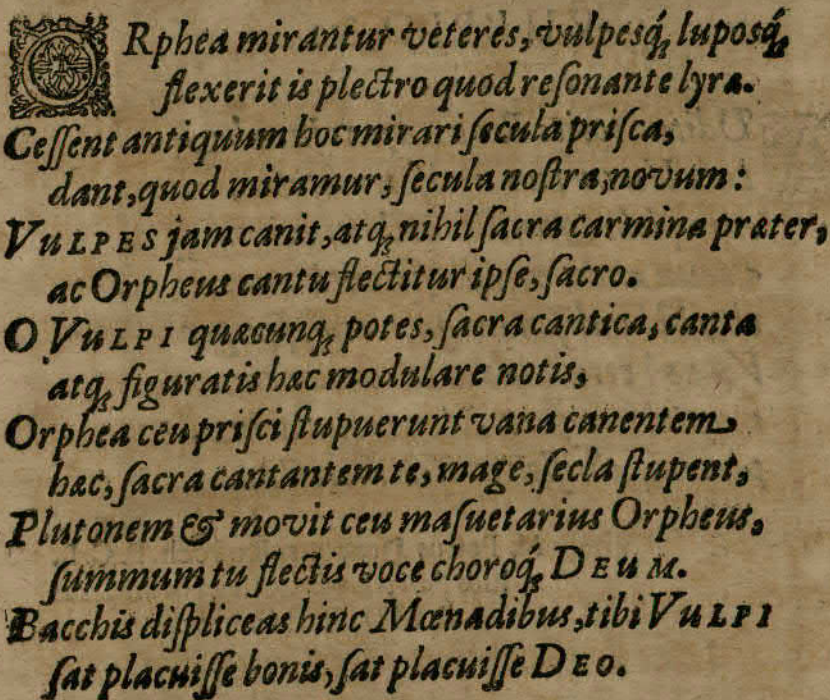 ORphea mirantur veteres, vulpesq́; luposq́;
flexerit is plectro quod reſonante lyra.
Ceſſent antiquum hoc mirari ſecula priſca,
dant, quod miramur, ſecula noſtra, novum:
VULPES jam canit, atq; nihil ſacra carmina præter,
ac Orpheus cantu flectitur ipſe, ſacro.
O VULPI quæcunq; potes, ſacra cantica, canta
atq; figuratis hæc modulare notis,
Orphea ceu priſci ſtupuerunt vana canentem
hæc, ſacra cantantem te, mage, ſecla ſtupent,
Plutonem & movit ceu maſuetarius Orpheus,
ſummum tu flectis voce choroq́; DEUM.
Bacchis diſpliceas hinc Mœnadibus, tibi VULPI
ſat placuiſſe bonis, ſat placuiſſe DEO.